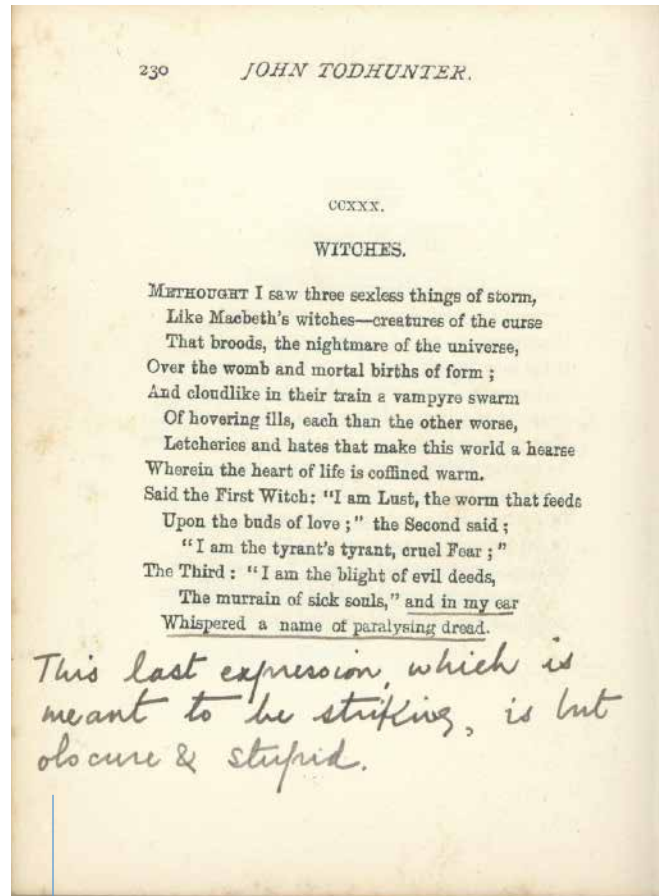 230 JOHN TODHUNTER.
CCXXX.
WITCHES.
METHOUGHT I saw three sexless things of storm,
Like Macbeth's witches—creatures of the curse
That broods, the nightmare of the universe,
Over the womb and mortal births of form ;
And cloudlike in their train a vampyre swarm
Of hovering ills, each than the other worse,
Letcheries and hates that make this world a hearse
Wherein the heart of life is coffined warm.
Said the First Witch: "I am Lust, the worm that feeds
Upon the buds of love ;" the Second said ;
"I am the tyrant's tyrant, cruel Fear ;"
The Third : "I am the blight of evil deeds,
The murrain of sick souls," and in my ear
Whispered a name of paralysing dread.
This last expression, which is
meant to be striking, is but
obscure & stupid.